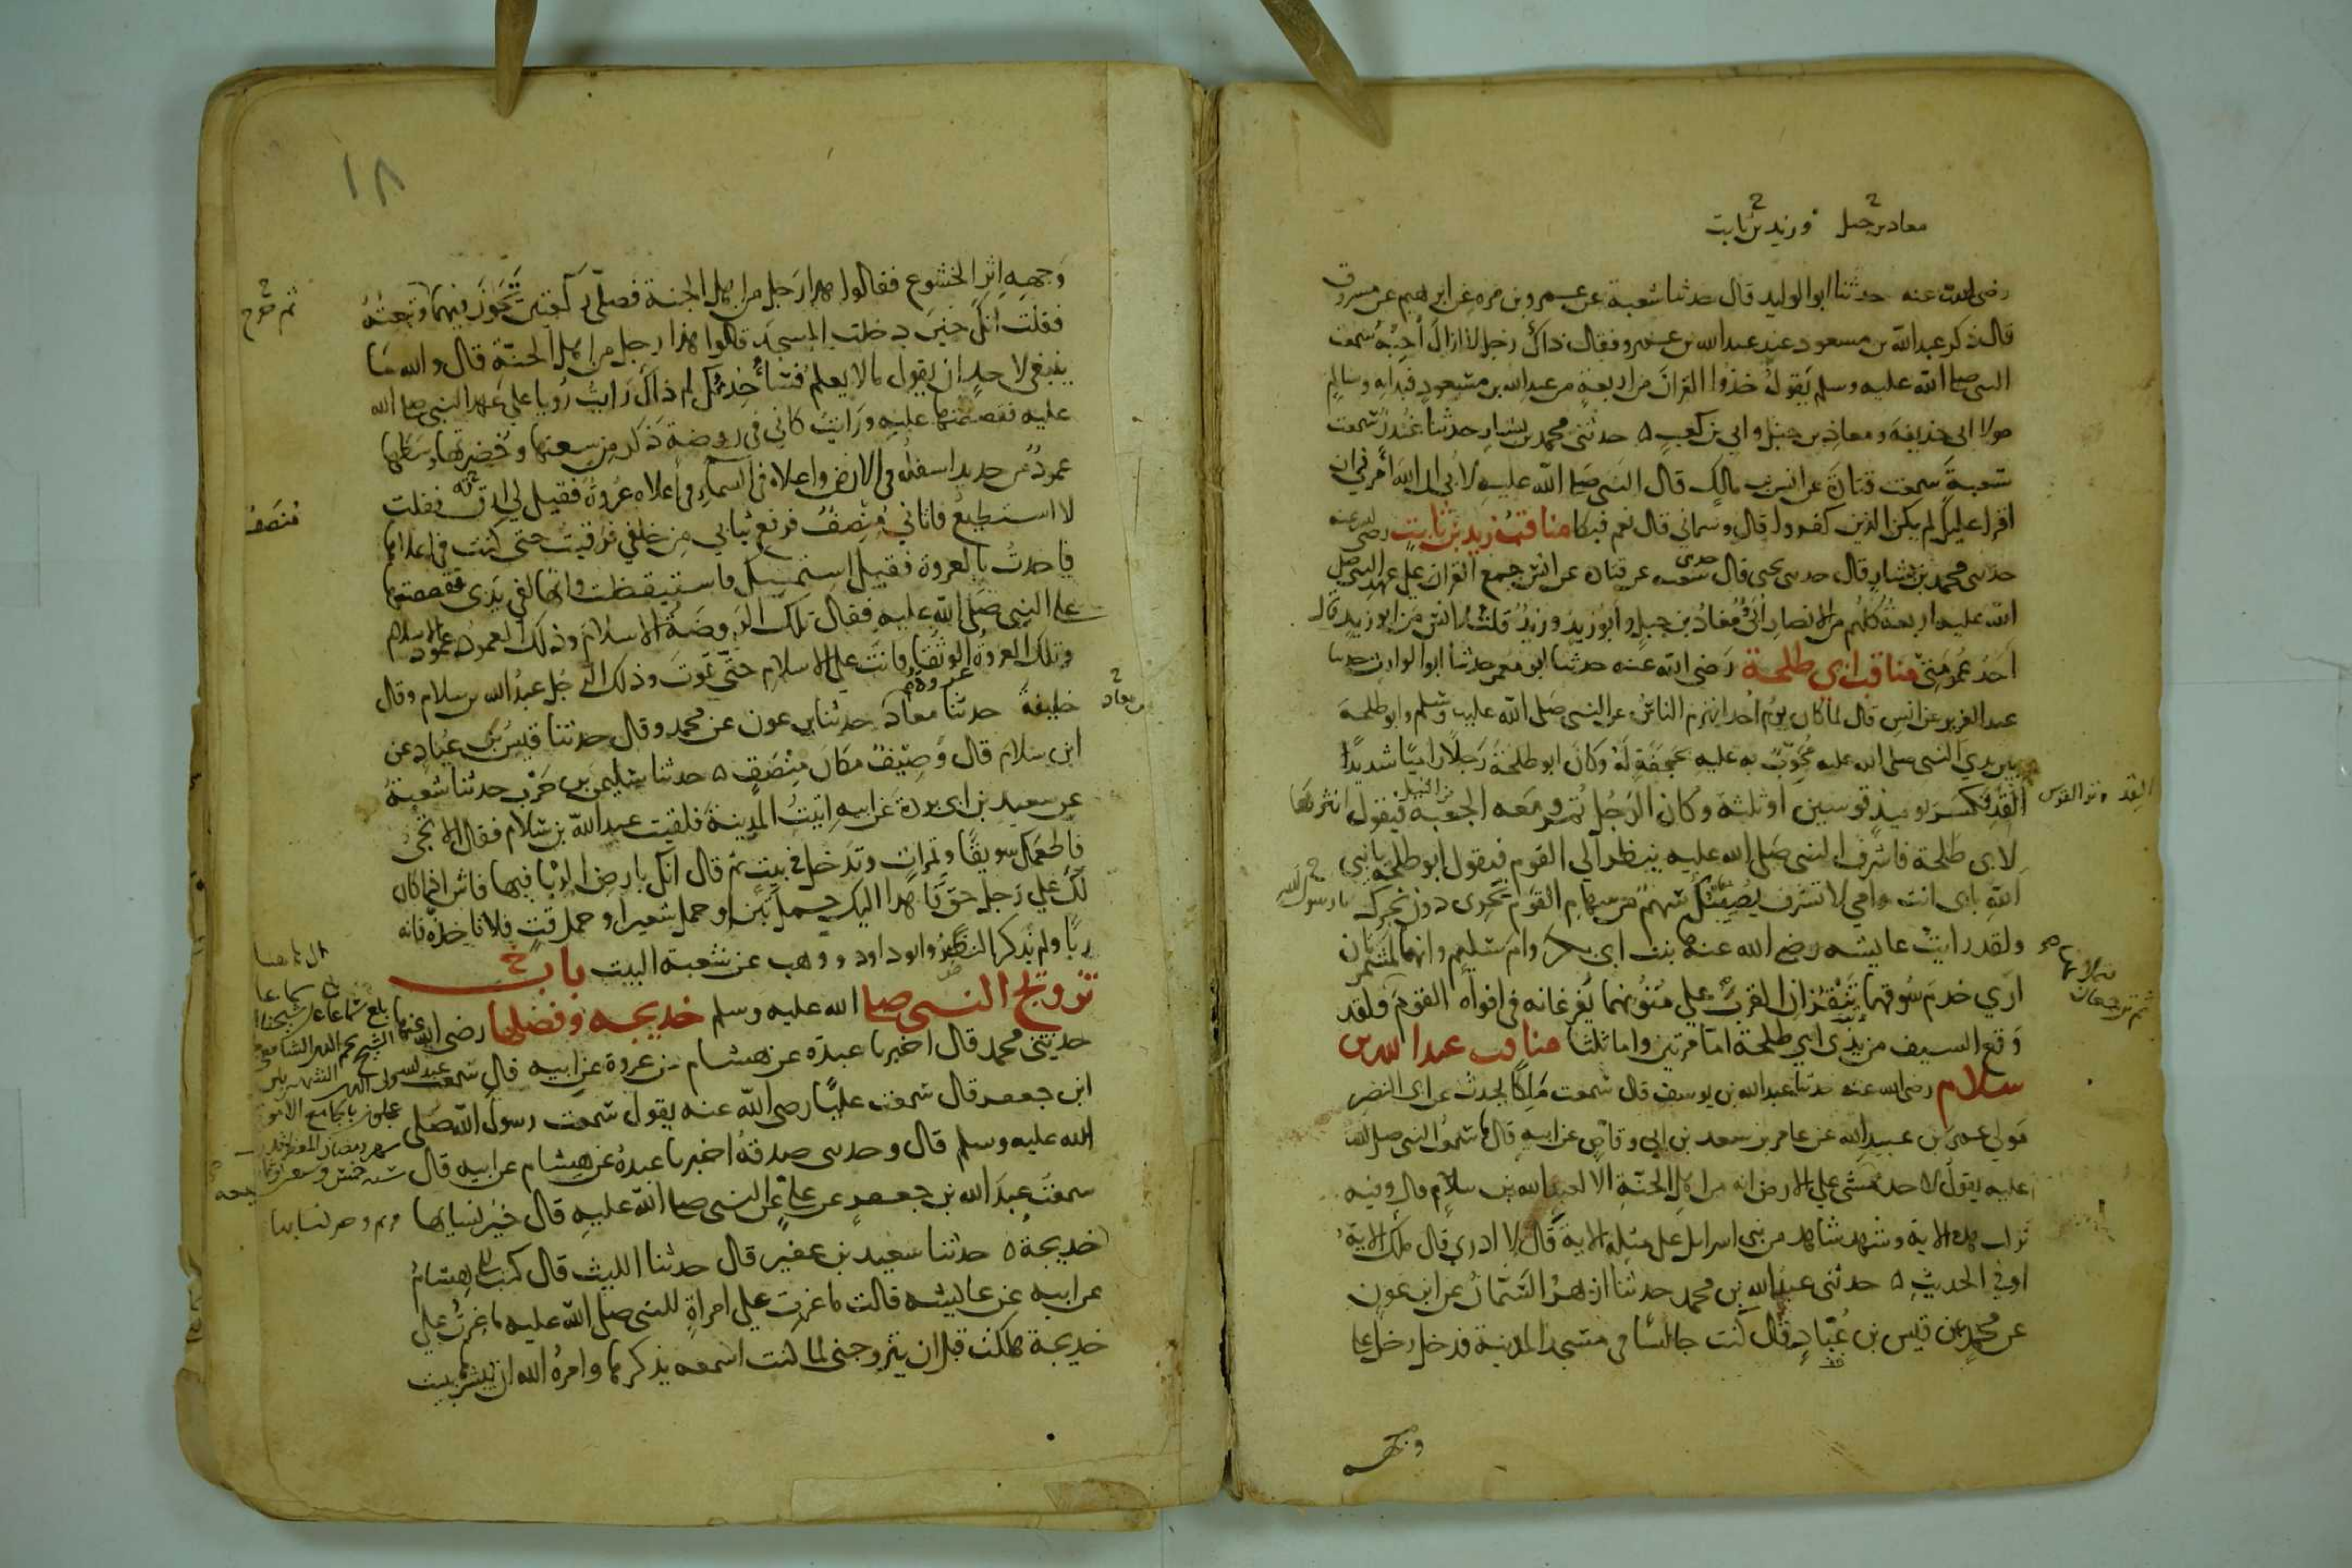 معاذ بن جبل وزيد بن ثابت
رضي الله عنه حدثنا ابو الوليد قال حدثنا شعبة عن عمرو بن مره عن ابرهيم عن مسروق
قال ذكر عبد الله بن مسعود عند عبد الله بن عمرو فقال ذاك رجل لا ازال احبه سمعت
النبي صلى الله عليه وسلم يقول خذوا القران من اربعة من عبد الله بن مسعود فبدا به وسالم
مولا ابي حذيفة ومعاذ بن جبل وابي بن كعب ٥ حدثني محمد بن بشار حدثنا غندر سمعت
شعبة سمعت قتادة عن انس بن مالك قال النبي صلى الله عليه لابي ان الله امرني ان
اقرا عليك لم يكن الذين كفروا قال وسماني قال نعم فبكا مناقب زيد بن ثابت رضي الله عنه
حدثني محمد بن بشار قال حدثني يحيى قال حدثني شعبه عن قتادة عن انس جمع القران على عهد النبي صلى
الله عليه اربعة كلهم من الانصار ابي ومعاذ بن جبل وابو زيد وزيد قلت لانس من ابو زيد قال
احد عمومتي مناقب ابي طلحة رضي الله عنه حدثنا ابو معمر حدثنا ابو الوارث حدثنا
عبد العزيز عن انس قال لما كان يوم احد انهزم الناس عن النبي صلى الله عليه وسلم وابو طلحة
بين يدي النبي صلى الله عليه مجوب به عليه بحجفة له وكان ابو طلحة رجلا راميا شديدا
القد فكسر يوميذ قوسين او ثلثة وكان الرجل يمر ومعه الجعبة من النبل فيقول انثرها
القد وتر القوس
لابي طلحة فاشرف النبي صلى الله عليه ينظر الي القوم فيقول ابو طلحة يا نبي
الله بابي انت وامي لا تشرف يصيبك سهم من سهام القوم نحري دون نحرك
يا رسول الله
ولقد رايت عايشه رضي الله عنها بنت ابي بكر وام سليم وانهما لمشمرتان
اري خدم سوقهما تنقزان القرب علي متونهما يفرغانه في افواه القوم ولقد
وقع السيف من يدي ابي طلحة اما مرتين واما ثلثا مناقب عبد الله بن
سلام رضي الله عنه حدثنا عبد الله بن يوسف قال سمعت ملكا يحدث عن ابي النضر
مولي عمر بن عبيد الله عن عامر بن سعد بن ابي وقاص عن ابيه قال ما سمعت النبي صلى الله
عليه يقول لاحد يمشي علي الارض انه من اهل الجنة الا لعبد الله بن سلام قال وفيه
نزلت هذه الاية وشهد شاهد من بني اسرايل على مثله الاية قال لا ادري قال ملك الاية
او في الحديث ٥ حدثني عبد الله بن محمد حدثنا ازهر السمان عن ابن عون
عن محمد عن قيس بن عباد قال كنت جالسا في مسجد المدينة فدخل رجل على
وجهه
١٨
وجهه اثر الخشوع فقالوا هذا رجل من اهل الجنة فصلى ركعتين تجوز فيهما وتبعته
ثم خرج
فقلت انك حين دخلت المسجد قالوا هذا رجل من اهل الجنة قال والله ما
ينبغي لاحد ان يقول ما لا يعلم فسا حدثك لم ذاك رايت رويا على عهد النبي صلى الله
عليه فقصصتها عليه ورايت كاني في روضة ذكر من سعتها وخضرتها وسطها
عمود من حديد اسفله في الارض واعلاه في السماء في اعلاه عروة فقيل لي ارقه فقلت
لا استطيع فاتاني منصف فرفع ثيابي من خلفي فرقيت حتى كنت في اعلاها
منصف
فاخذت بالعروة فقيل استمسك فاستيقظت وانها لفي يدي فقصصتها
على النبي صلى الله عليه فقال تلك الروضة الاسلام وذلك العمود عمود الاسلام
وتلك العروة عروة الوثقى فانت على الاسلام حتى تموت وذلك الرجل عبد الله بن سلام وقال
خليفة حدثنا معاذ حدثنا بن عون عن محمد وقال حدثنا قيس بن عباد عن
ابن سلام قال وصيف مكان منصف ٥ حدثنا سليمن بن حرب حدثنا شعبة
عن سعيد بن ابي بردة عن ابيه اتيت المدينة فلقيت عبد الله بن سلام فقال الا تجي
فاطعمك سويقا وتمرات وتدخل في بيت ثم قال انك بارض الربا فيها فاش اذا كان
لك علي رجل حق فاهدا اليك حمل تبن او حمل شعير او حمل قت فلا تاخذه فانه
ربا ولم يذكر النضر وابو داود ووهب عن شعبة البيت باب
تزويج النبي صلى الله عليه وسلم خديجه وفضلها رضي الله عنها
حدثني محمد قال اخبرنا عبدة عن هشام بن عروة عن ابيه قال سمعت عبد الله
ابن جعفر قال سمعت عليا رضي الله عنه يقول سمعت رسول الله صلى
الله عليه وسلم قال وحدثني صدقة اخبرنا عبدة عن هشام عن ابيه قال
سمعت عبد الله بن جعفر عن علي عن النبي صلى الله عليه قال خير نسايها مريم وخير نسايها
خديجة ٥ حدثنا سعيد بن عفير قال حدثنا الليث قال كتب الي هشام
عن ابيه عن عايشه قالت ما غرت علي امراة للنبي صلى الله عليه ما غرت علي
خديجة هلكت قبل ان يتزوجني لما كنت اسمعه يذكرها وامره الله ان يبشرها ببيت